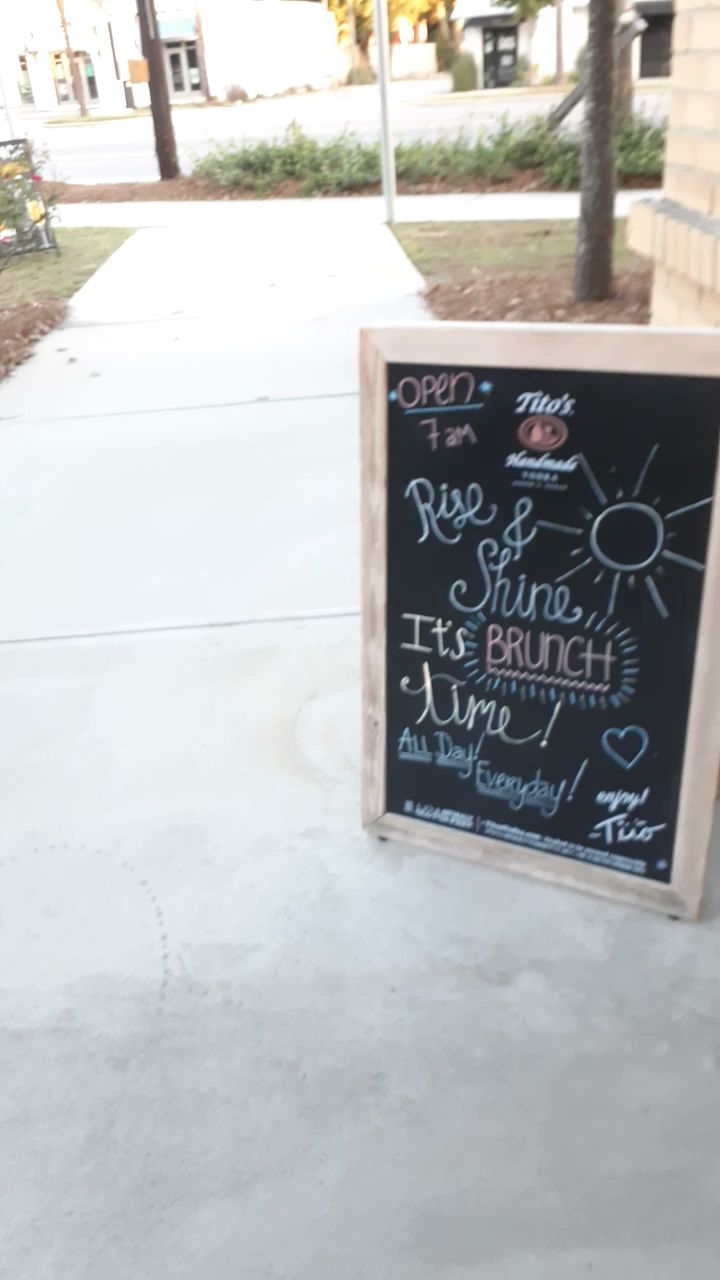 OPEN
7am
Tito's
Handmade
VODKA
Rise &
Shine
It's BRUNCH
Time!
All Day!
Everyday!
enjoy!
-Tito